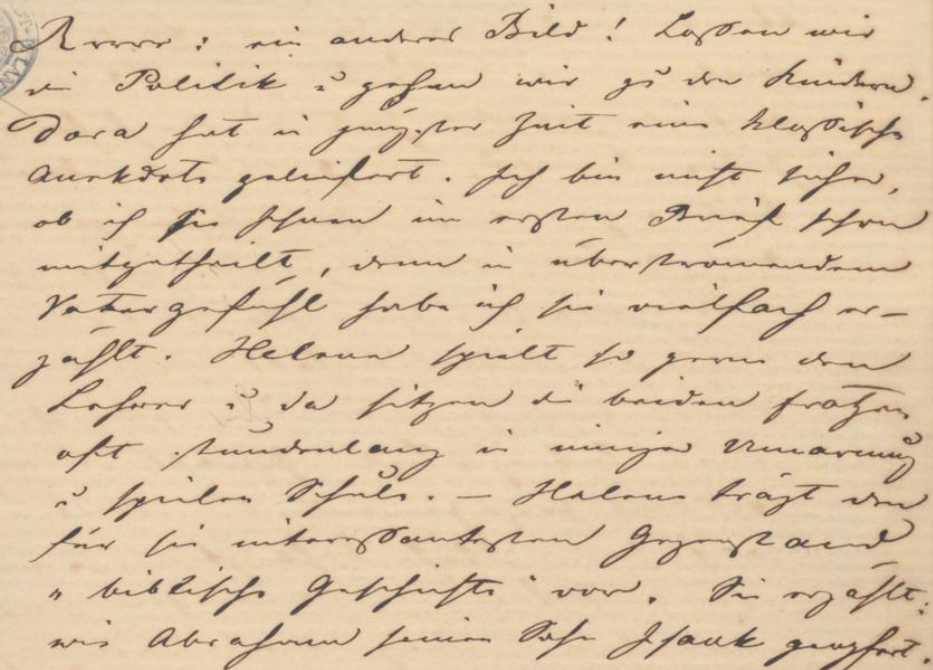 Rrrrr: ein anderes Bild! Lassen wir
die Politik u gehen wir zu den Kindern.
Dora hat in jüngster Zeit eine klassische
Anekdote geliefert. Ich bin nicht sicher,
ob ich sie Ihnen im ersten Brief schon
mitgetheilt, denn in überströmendem
Vatergefühl habe ich sie vielfach er-
zählt. Helene spielt so gerne den
Lehrer u da sitzen die beiden Fratzen
oft stundenlang in inniger Umarmung
u spielen Schule. – Helene trägt den
für sie interessantesten Gegenstand
„biblische Geschichte" vor. Sie erzählt:
wie Abraham seinen Sohn Isaak geopfert.